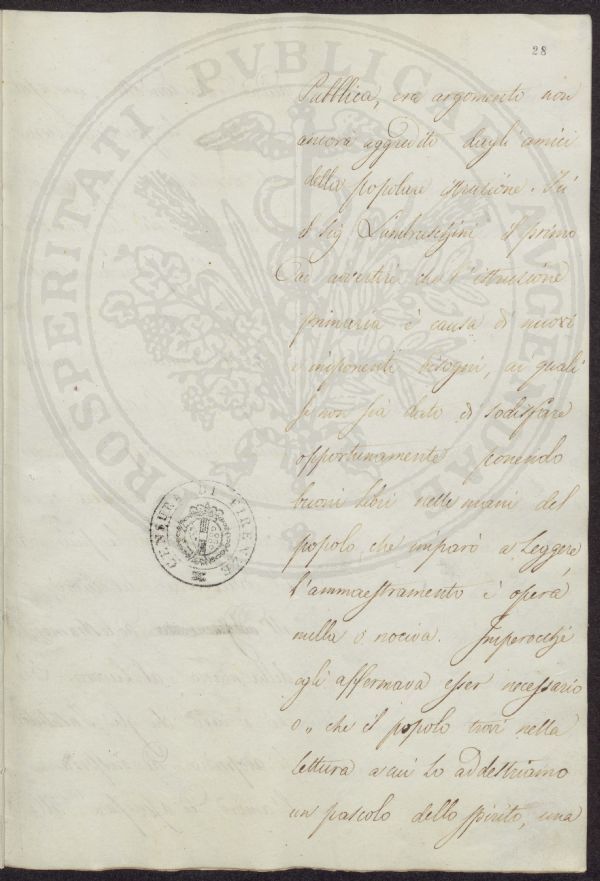 28
Pubblica, era argomento non
ancora aggredito dagli amici
della popolare istruzione. Fu
il Sig Lambruschini il primo
ad avvertire che l'istruzione
primaria è causa di nuovi
e imponenti bisogni, ai quali
se non sia dato di sodisfare
opportunamente ponendo
buoni libri nelle mani del
popolo che imparò a leggere,
l'ammaestramento è opera
nulla o nociva. Imperocchè
egli affermava esser necessario
o „ che il popolo trovi nella
lettura a cui lo addestriamo
un pascolo dello spirito, una
CENSURA DI FIRENZE
PROSPERITATI PVBLICAE AVGENDAE